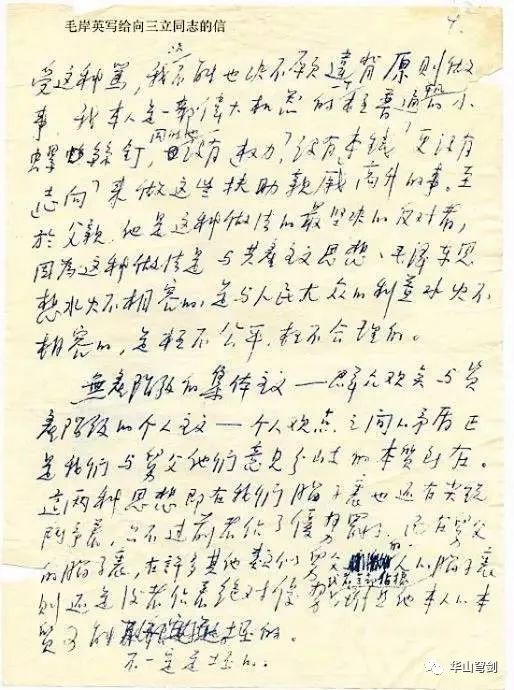 毛岸英写给向三立同志的信
4.
受这种罵，我决不能也决不願違背原则做
事，我本人是一部偉大机器的極普通的小
螺丝釘，同时也没有“权力”，没有“本錢”，更没有
“志向”来做这些扶助親戚高升的事。至
於父親，他是这种做法的最坚决的反对者，
因為这种做法是与共產主义思想、毛泽东思
想水火不相容的，是与人民大众的利益水火不
相容的，是極不公平，極不合理的。
無產阶级的集体主义——群众观点与资
產阶级的个人主义——个人观点之间的矛盾正
是我们与舅父他们意见分歧的本质所在。
這两种思想即在我们脑子裏也还在尖锐
鬥争着，只不过前者佔了優势罷了。而在舅父
的脑子裏，在許多其他类似舅父的人的脑子裏
则还是後者佔着绝对優势，或者全部佔據，雖然他本人的本
质可能
不一定是坏的。
华山穹剑